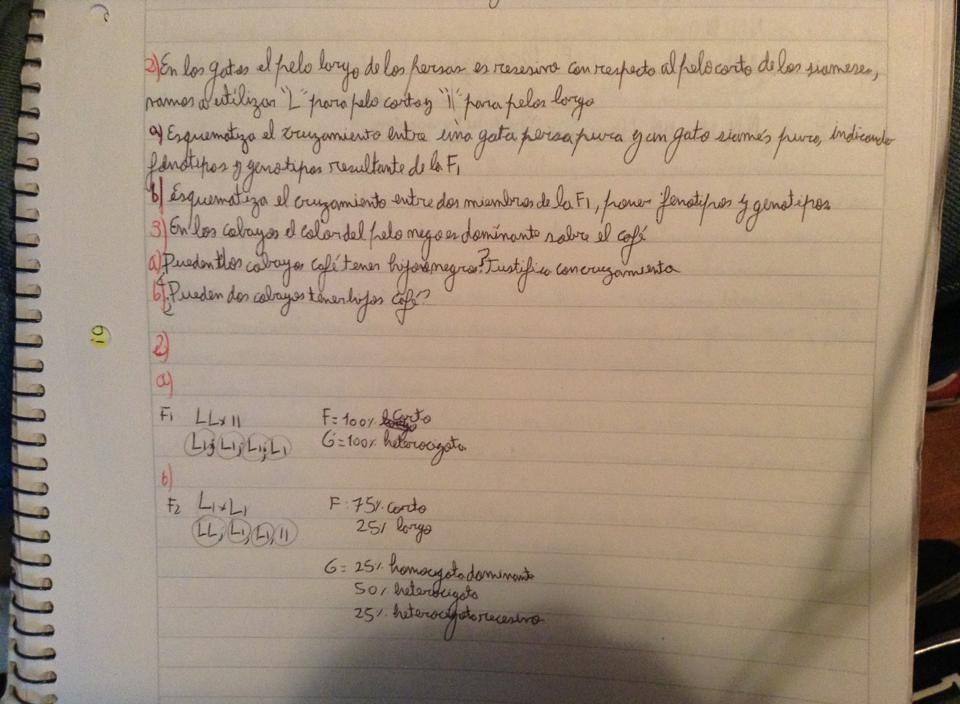 2) En los gatos el pelo largo de los persas es resesivo con respecto al pelo corto de los siameses,
vamos a utilizar "L" para pelo corto y "l" para pelos largo
a) Esquematiza el cruzamiento entre una gata persa pura y un gato siamés puro, indicando
fenotipos y genotipos resultante de la F1
b) Esquematiza el cruzamiento entre dos miembros de la F1, poner fenotipos y genotipos
3) En los cobayos el color del pelo negro es dominante sobre el café
a) ¿Pueden dos cobayos café tener hijos negros? Justifica con cruzamiento
b) ¿Pueden dos cobayos tener hijos café?
19
2)
a)
F1 LL x ll F = 100% corto
Ll, Ll, Ll, Ll G = 100% heterocigoto
b)
F2 Ll x Ll F: 75% corto
LL, Ll, Ll, ll 25% largo
G = 25% homocigoto dominante
50% heterocigoto
25% heterocigoto recesivo